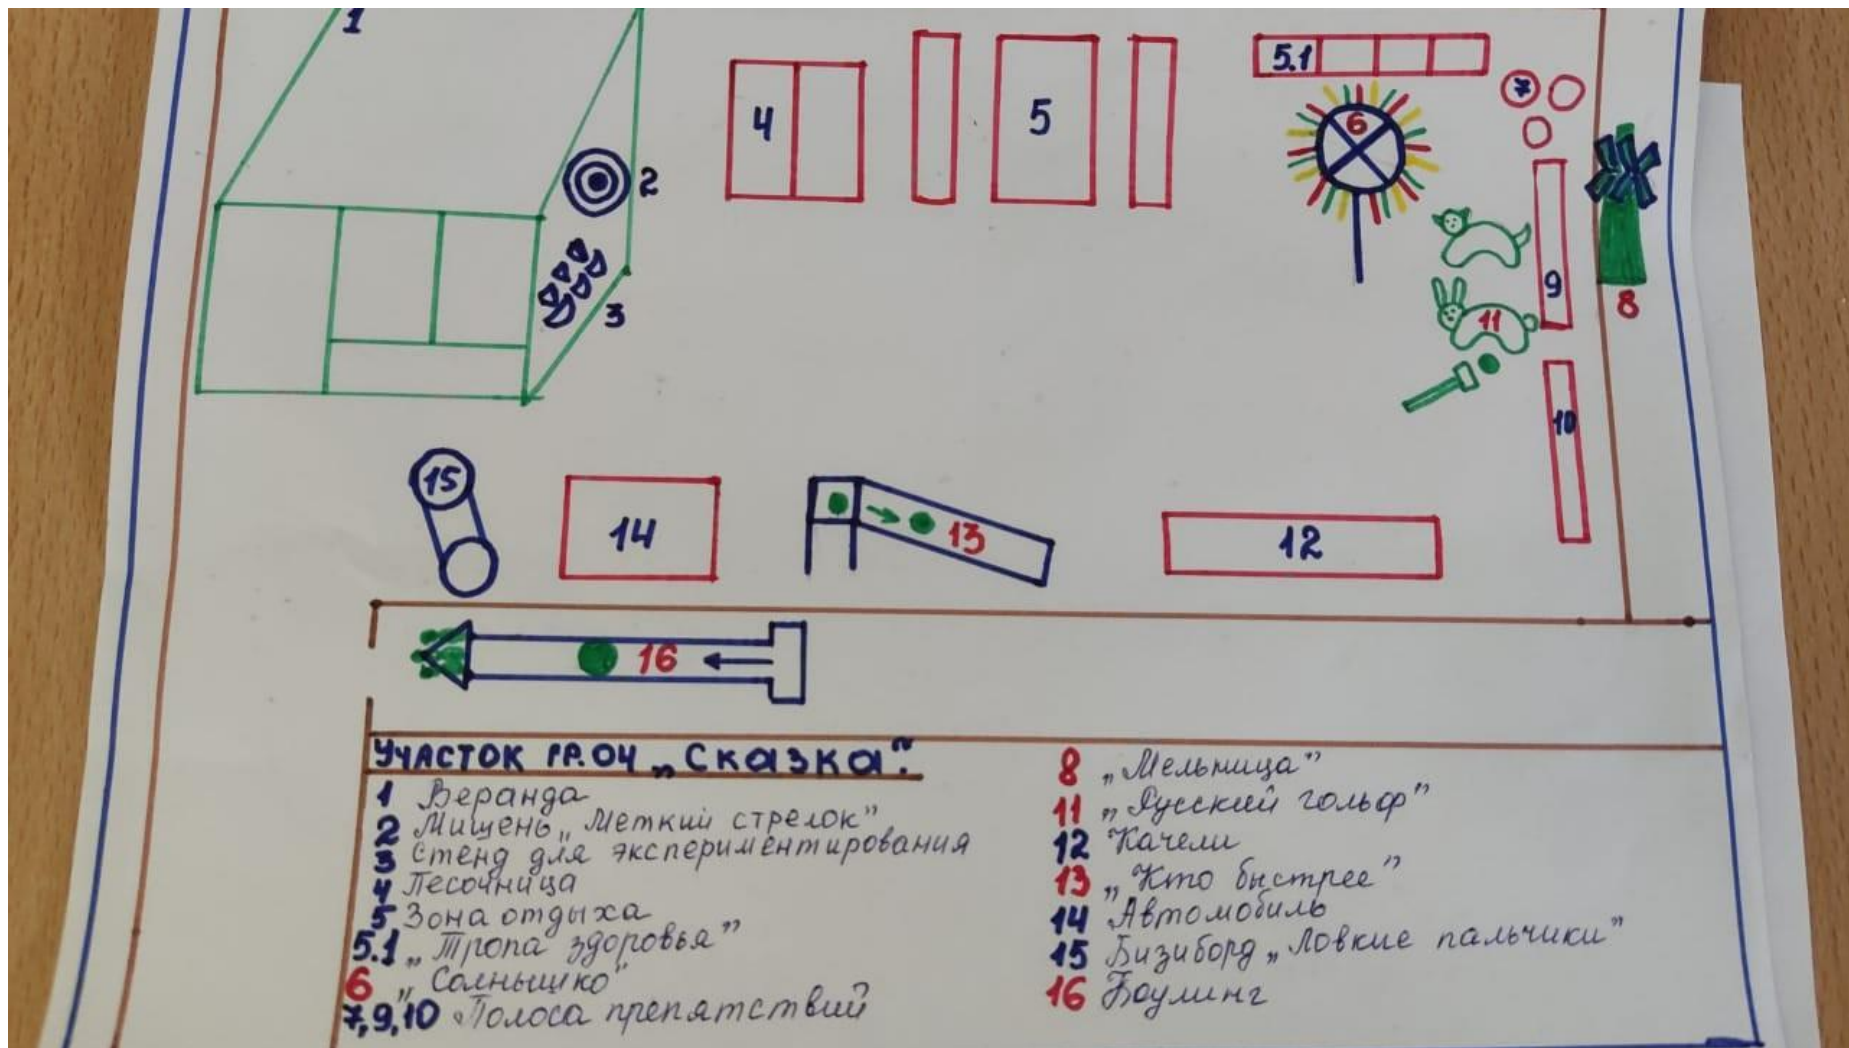 1
5.1
4
5
6
7
2
9
3
11
8
10
15
14
13
12
16
Участок гр.04 „Сказка".
1 Веранда
2 Мишень „Меткий стрелок"
3 Стенд для экспериментирования
4 Песочница
5 Зона отдыха
5.1 „Тропа здоровья"
6 „Солнышко"
7,9,10 Полоса препятствий
8 „Мельница"
11 „Русский гольф"
12 Качели
13 „Кто быстрее"
14 Автомобиль
15 Бизиборд „Ловкие пальчики"
16 Боулинг